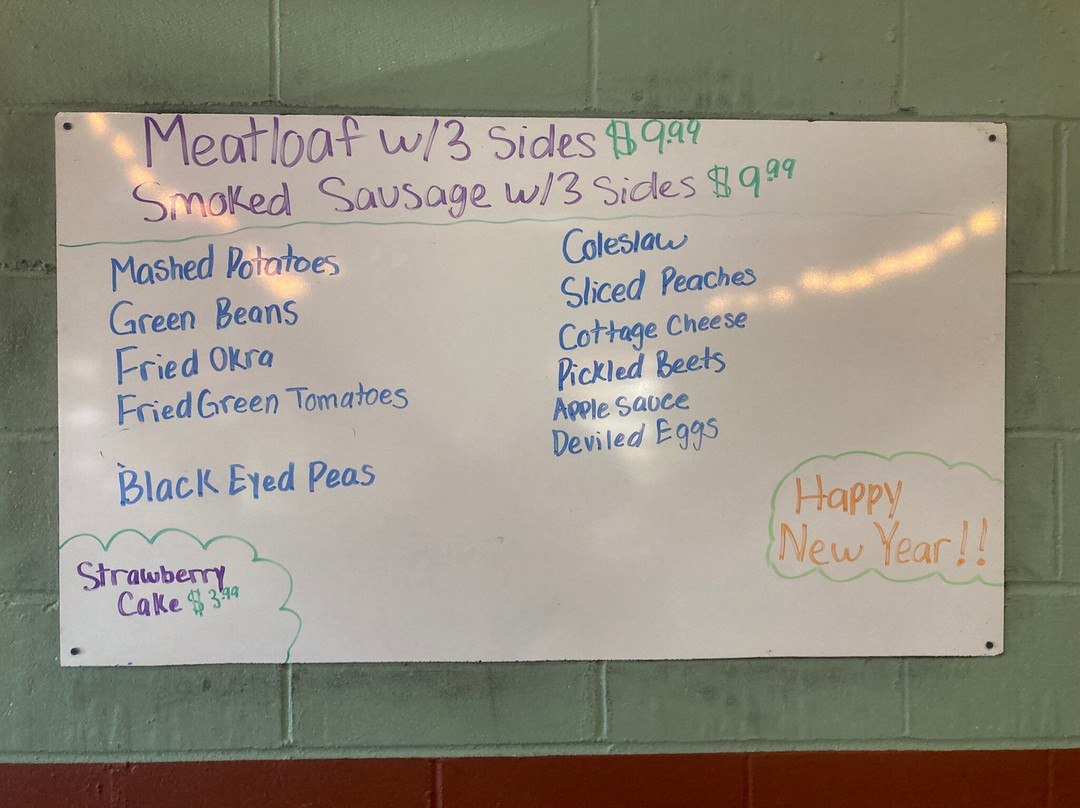 Meatloaf w/3 Sides $9.99
Smoked Sausage w/3 Sides $9.99
Mashed Potatoes
Green Beans
Fried Okra
Fried Green Tomatoes
Black Eyed Peas
Coleslaw
Sliced Peaches
Cottage Cheese
Pickled Beets
Apple Sauce
Deviled Eggs
Strawberry
Cake $3.99
Happy
New Year!!